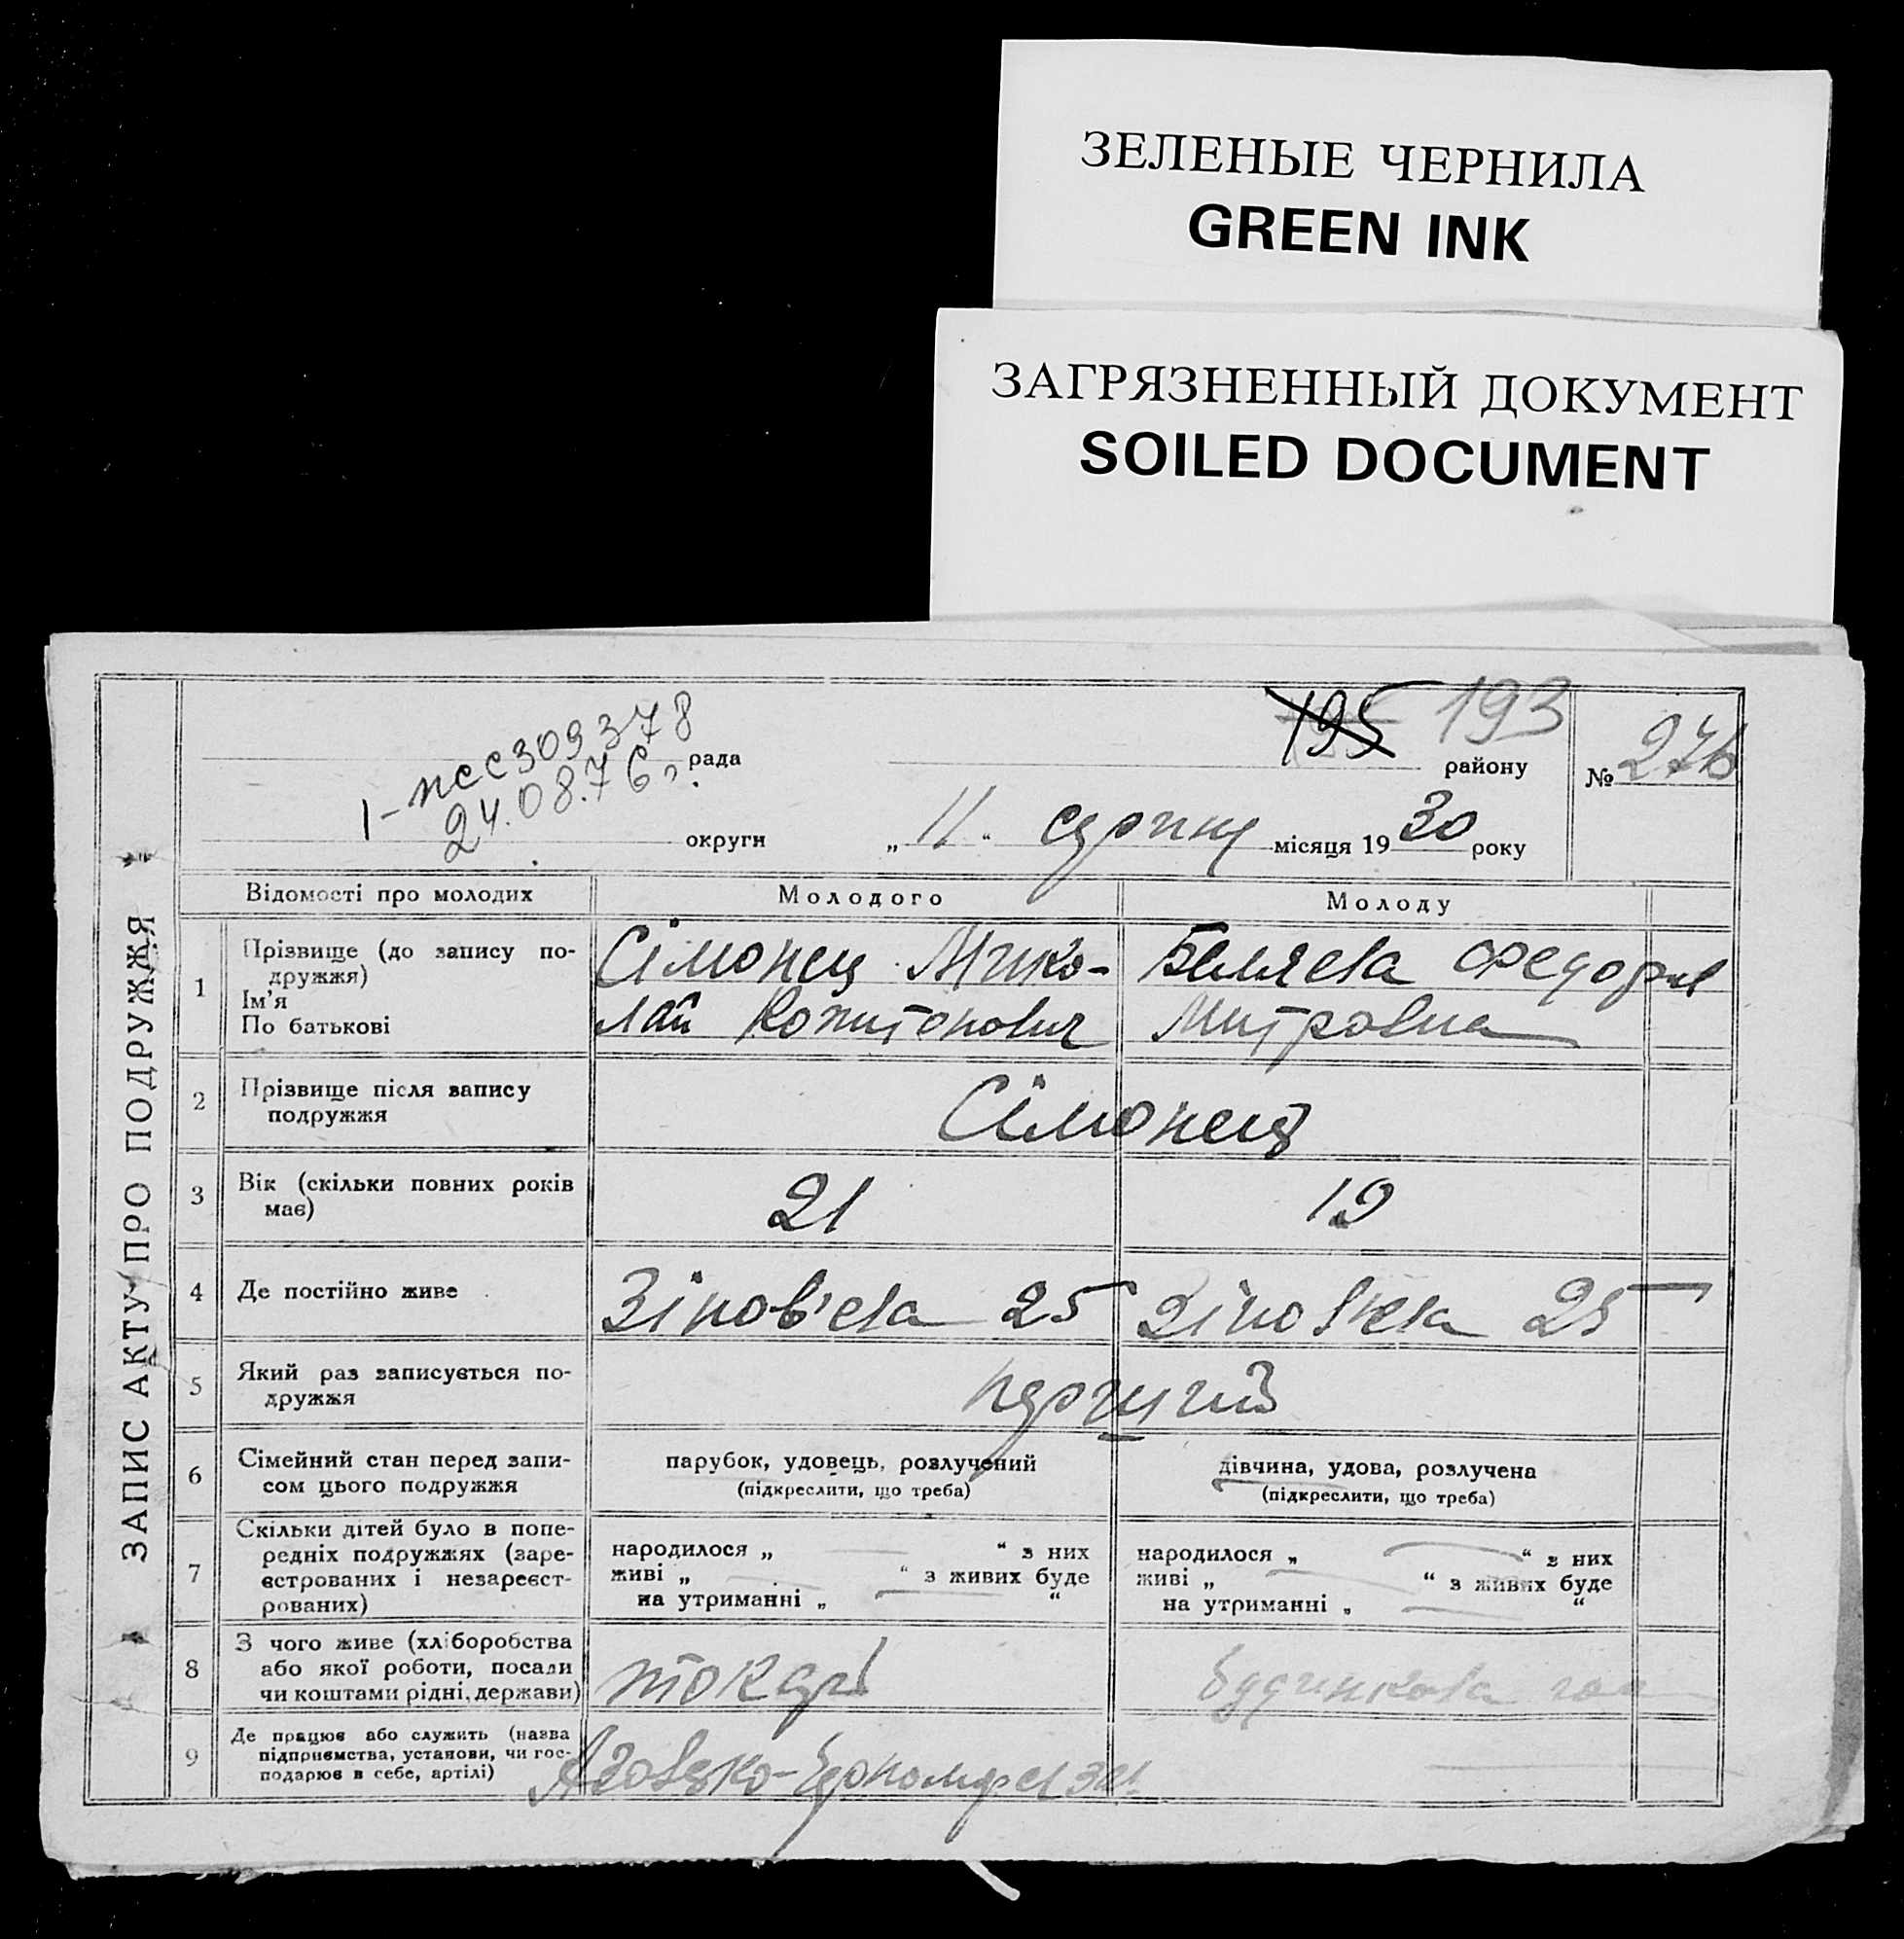 ЗЕЛЕНЫЕ ЧЕРНИЛА
GREEN INK
ЗАГРЯЗНЕННЫЙ ДОКУМЕНТ
SOILED DOCUMENT
ЗАПИС АКТУ ПРО ПОДРУЖЖЯ
195 193
309378 рада району №
24.08.76 г.
округи „11“ серпня місяця 1930 року
Відомості про молодих Молодого Молоду
1 Прізвище (до запису по-
дружжя)
Ім'я
По батькові
Сімонец Мико-
лай
Беляєва Федора
Митровна
2 Прізвище після запису
подружжя
Сімонец
3 Вік (скільки повних років
має)
21 19
4 Де постійно живе Зінов'єва 25 Зіновєва 25
5 Який раз записується по-
дружжя
перший
6 Сімейний стан перед запи-
сом цього подружжя
парубок, удовець, розлучений
(підкреслити, що треба)
дівчина, удова, розлучена
(підкреслити, що треба)
7 Скільки дітей було в попе-
редніх подружжях (заре-
єстрованих і незареєст-
рованих)
народилося „ — “ з них
живі „ — “ з живих буде
на утриманні „ — “
народилося „ — “ з них
живі „ — “ з живих буде
на утриманні „ — “
8 З чого живе (хліборобства
або якої роботи, посади
чи коштами рідні, держави)
токарь
будинкова
9 Де працює або служить (назва
підприємства, установи, чи гос-
подарює в себе, артілі)